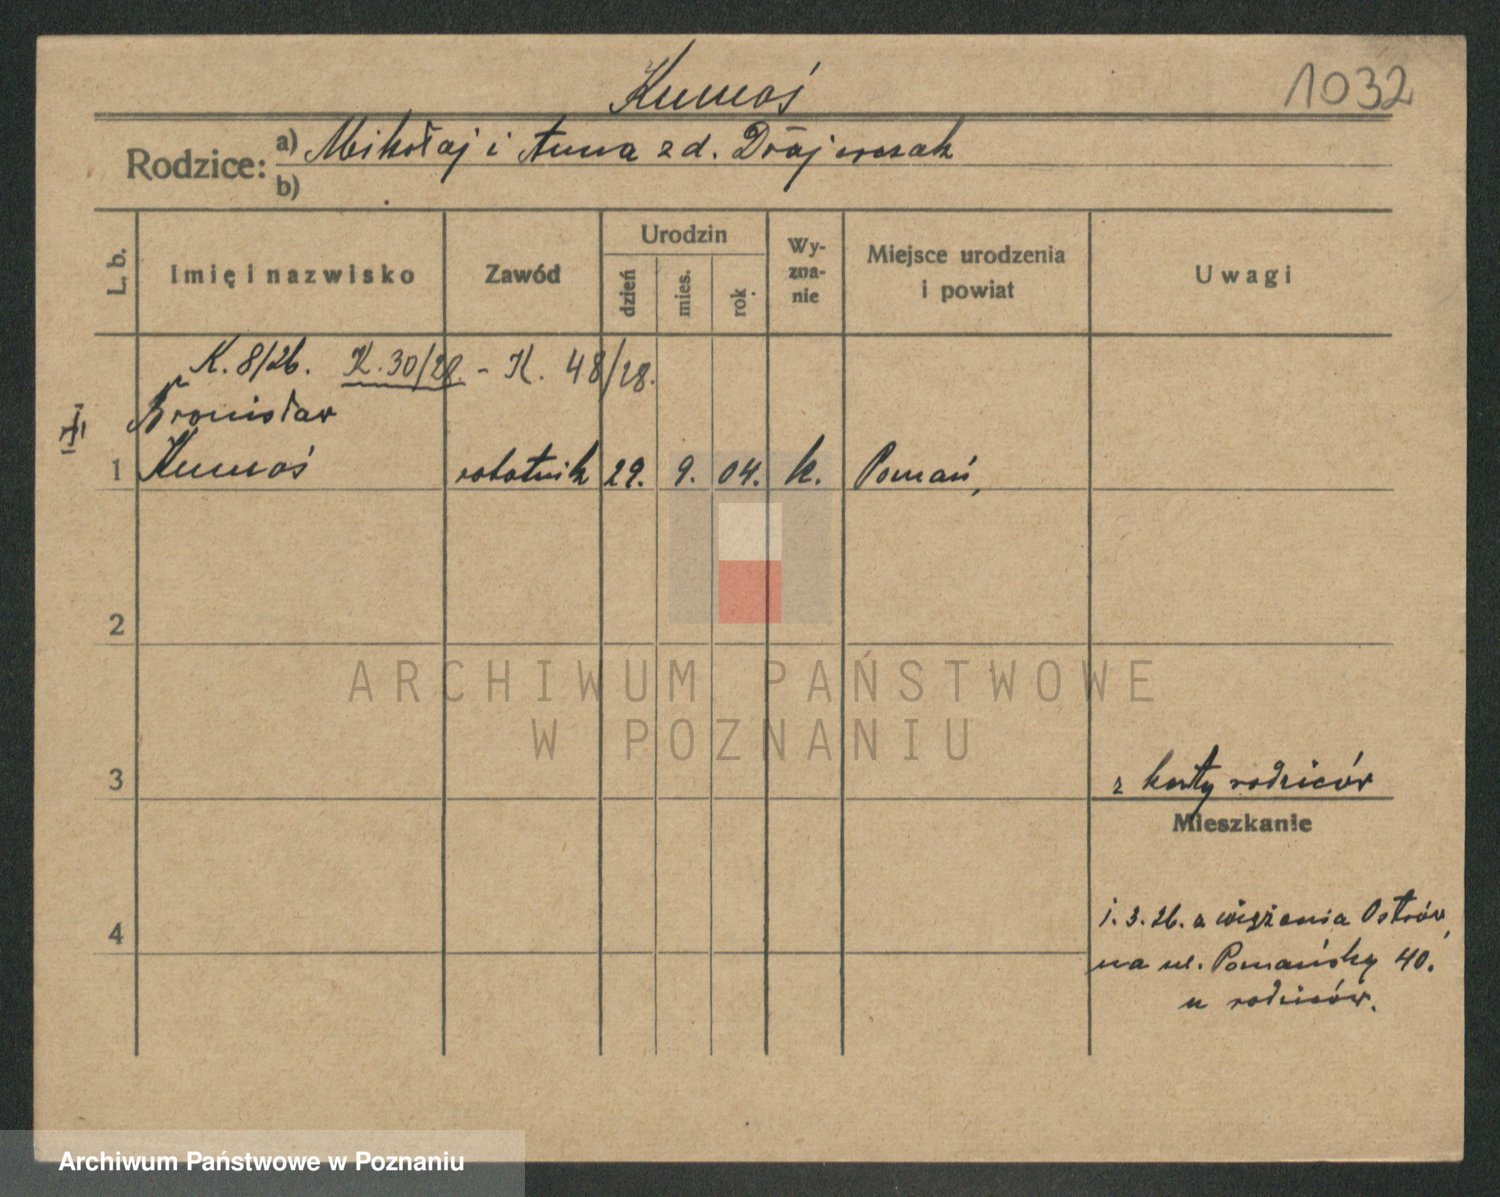 Kumoś
1032
Rodzice: a) Mikołaj i Anna z d.
b)
L. b.
Imię i nazwisko
Zawód
Urodzin
dzień
mies.
rok
Wy-
zna-
nie
Miejsce urodzenia
i powiat
Uwagi
K. 8/26. K. 30/28. - K. 48/28.
Bronisław
1 Kumoś robotnik 29. 9. 04. k. Poznań,
2
ARCHIWUM PAŃSTWOWE
W POZNANIU
3
z karty rodziców
Mieszkanie
4
1. 3. 26. z więzienia Ostrów,
na ul. Poznańską 40.
u rodziców.
Archiwum Państwowe w Poznaniu